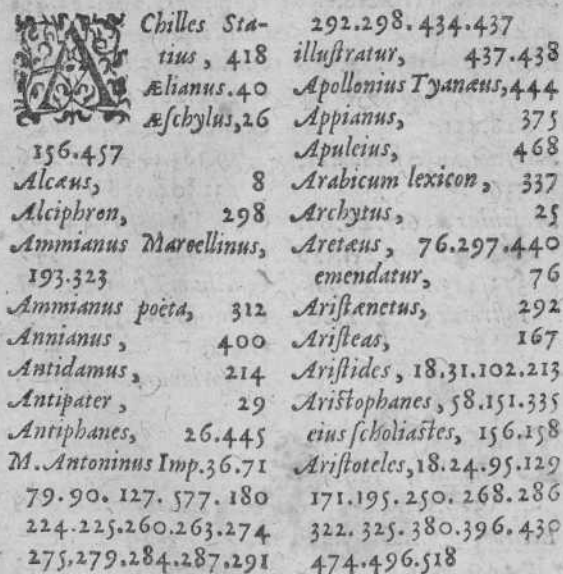 AChilles Sta-
tius, 418
Ælianus. 40
Æſchylus, 26
156. 457
Alcæus, 8
Alciphron, 298
Ammianus Marcellinus,
193. 323
Ammianus poëta, 312
Annianus, 400
Antidamus, 214
Antipater, 29
Antiphanes, 26. 445
M. Antoninus Imp. 36. 71
79. 90. 127. 577. 180
224. 225. 260. 263. 274
275, 279. 284. 287. 291
292. 298. 434. 437
illuſtratur, 437. 438
Apollonius Tyanæus, 444
Appianus, 375
Apuleius, 468
Arabicum lexicon, 337
Archytus, 25
Aretæus, 76. 297. 440
emendatur, 76
Ariſtænetus, 292
Ariſteas, 167
Ariſtides, 18. 31. 102. 213
Ariſtophanes, 58. 151. 335
eius ſcholiaſtes, 156. 158
Ariſtoteles, 18. 24. 95. 129
171. 195. 250. 268. 286
322. 325. 380. 396. 430
474. 496. 518